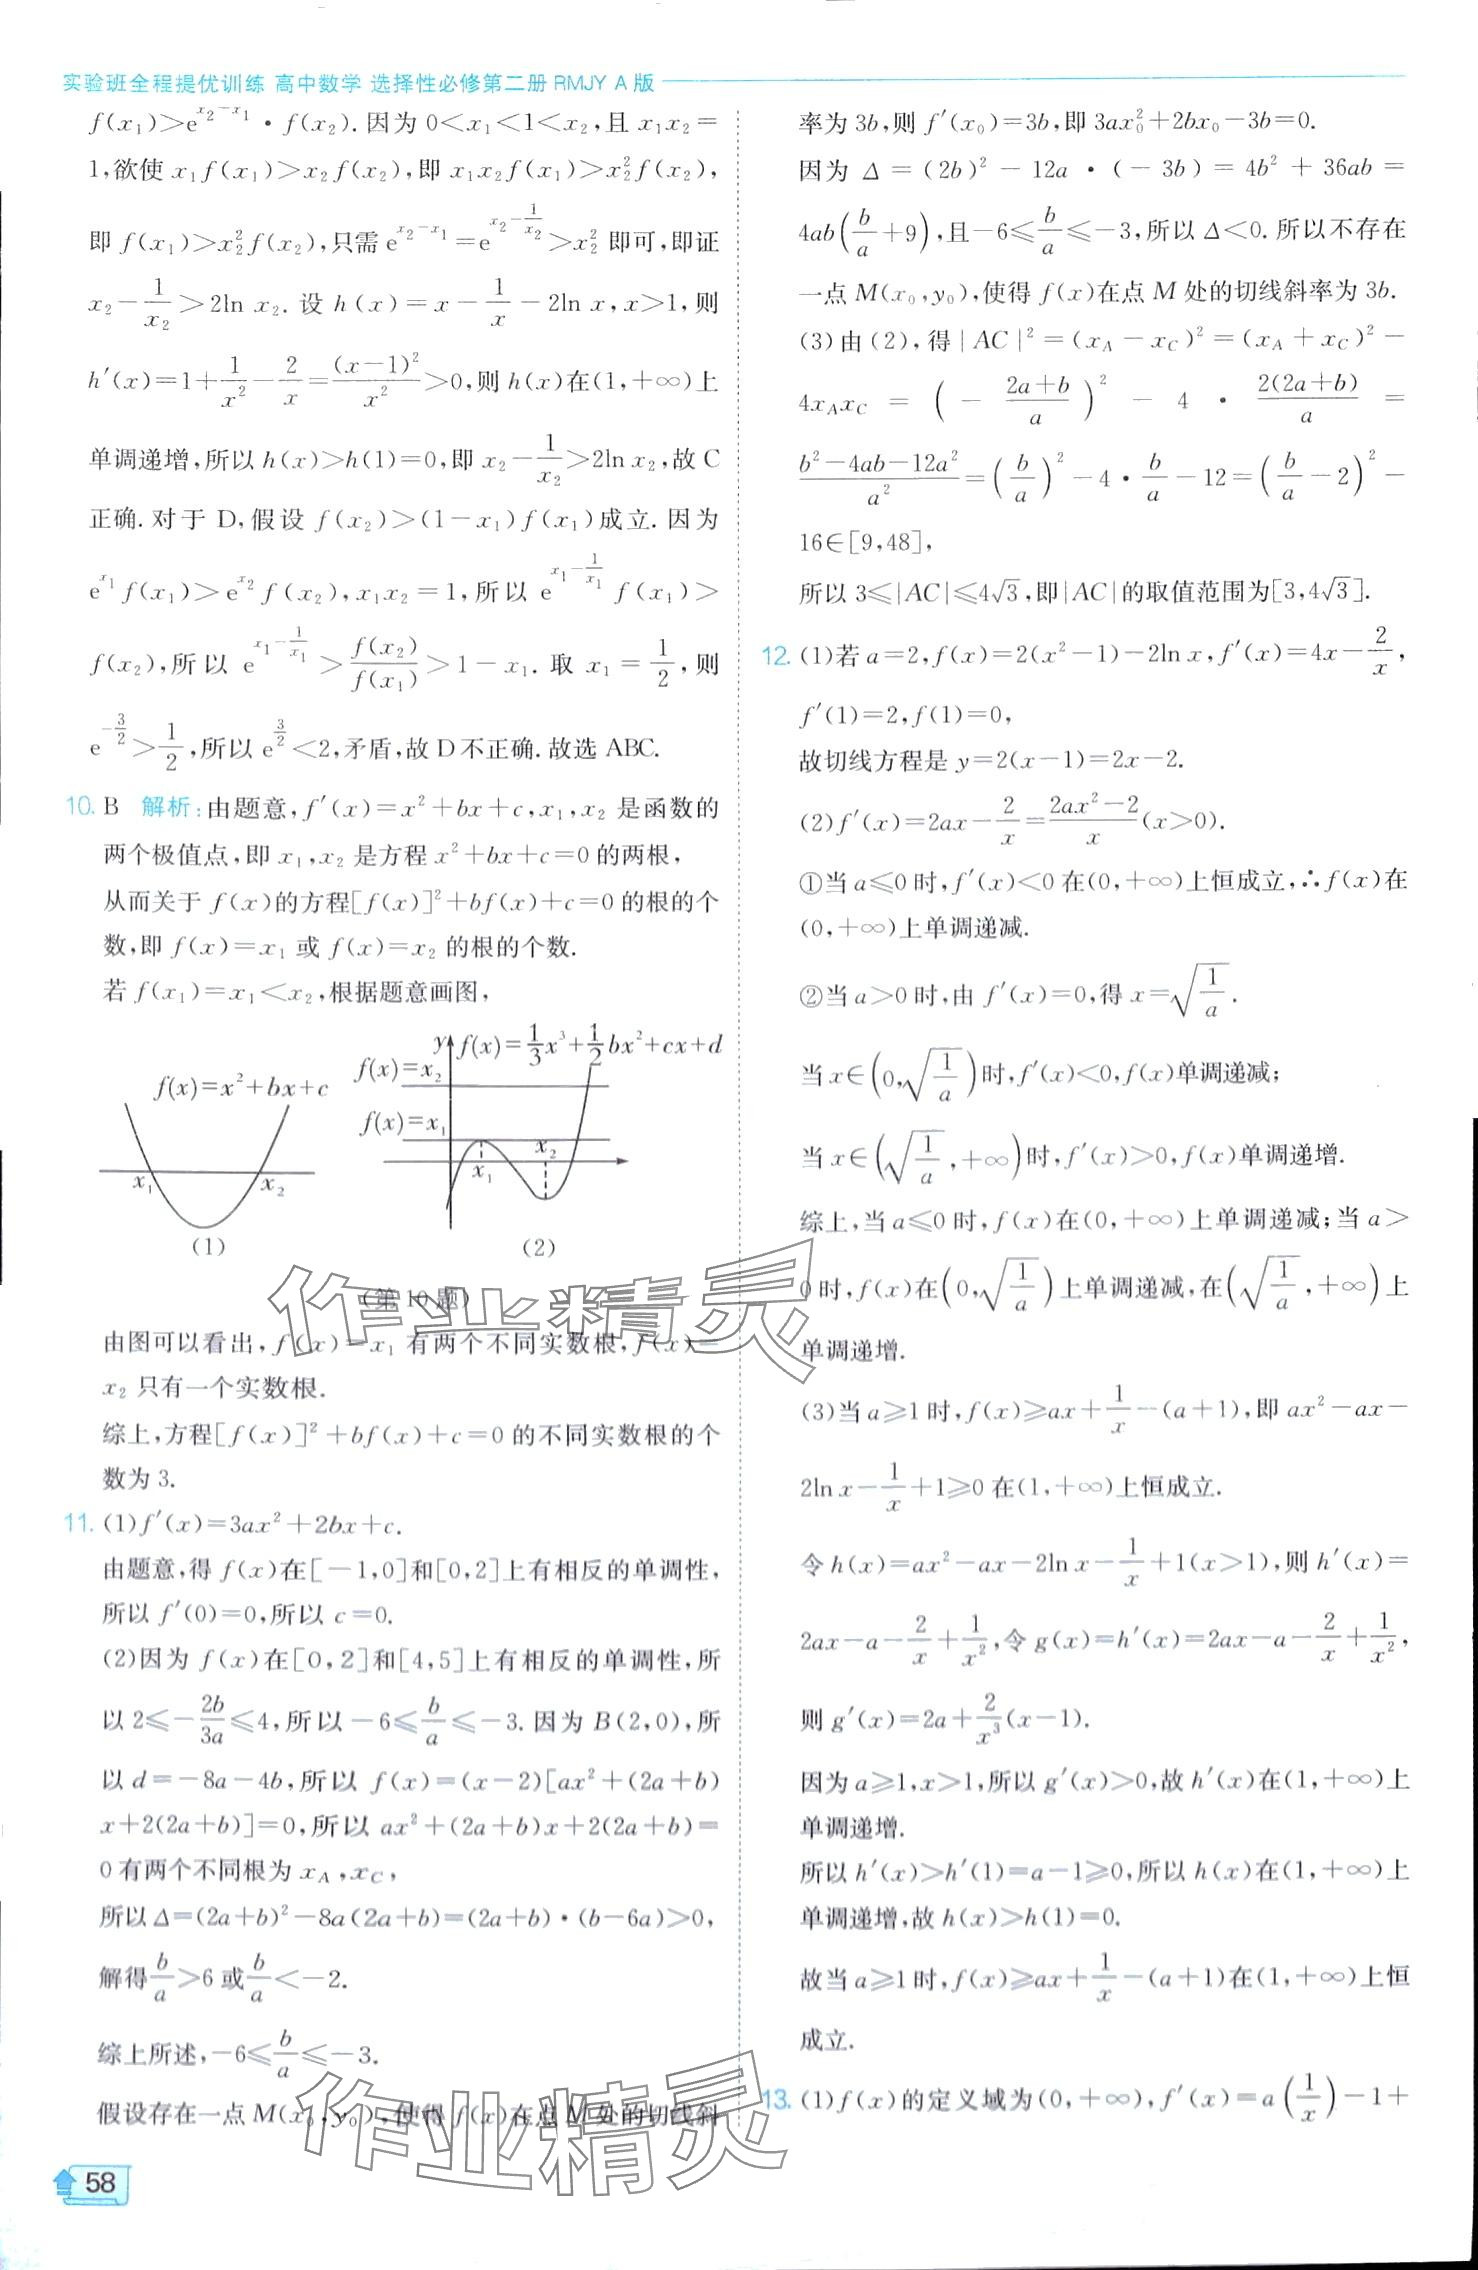 实验班全程提优训练 高中数学 选择性必修第二册 RMJY A 版
f(x₁)>e^{x₂-x₁}·f(x₂). 因为 0<x₁<1<x₂,且 x₁x₂=
1,欲使 x₁f(x₁)>x₂f(x₂),即 x₁x₂f(x₁)>x₂²f(x₂),
即 f(x₁)>x₂²f(x₂),只需 e^{x₂-x₁}=e^{x₂-1/x₂}>x₂² 即可,即证
x₂-1/x₂>2ln x₂. 设 h(x)=x-1/x-2ln x,x>1,则
h′(x)=1+1/x²-2/x=(x-1)²/x²>0,则 h(x)在(1,+∞)上
单调递增,所以 h(x)>h(1)=0,即 x₂-1/x₂>2ln x₂,故 C
正确. 对于 D,假设 f(x₂)>(1-x₁)f(x₁)成立. 因为
e^{x₁}f(x₁)>e^{x₂}f(x₂),x₁x₂=1,所以 e^{x₁-1/x₁}f(x₁)>
f(x₂),所以 e^{x₁-1/x₁}>f(x₂)/f(x₁)>1-x₁. 取 x₁=1/2,则
e^{-3/2}>1/2,所以 e^{3/2}<2,矛盾,故 D 不正确. 故选 ABC.
10. B 解析:由题意,f′(x)=x²+bx+c,x₁,x₂ 是函数的
两个极值点,即 x₁,x₂ 是方程 x²+bx+c=0 的两根,
从而关于 f(x)的方程[f(x)]²+bf(x)+c=0 的根的个
数,即 f(x)=x₁ 或 f(x)=x₂ 的根的个数.
若 f(x₁)=x₁<x₂,根据题意画图,
f(x)=x²+bx+c
x₁
x₂
(1)
y
f(x)=1/3x³+1/2bx²+cx+d
f(x)=x₂
f(x)=x₁
x₁
x₂
(2)
(第 10 题)
由图可以看出,f(x)=x₁ 有两个不同实数根,f(x)=
x₂ 只有一个实数根.
综上,方程[f(x)]²+bf(x)+c=0 的不同实数根的个
数为 3.
11. (1)f′(x)=3ax²+2bx+c.
由题意,得 f(x)在[-1,0]和[0,2]上有相反的单调性,
所以 f′(0)=0,所以 c=0.
(2)因为 f(x)在[0,2]和[4,5]上有相反的单调性,所
以 2≤-2b/3a≤4,所以-6≤b/a≤-3. 因为 B(2,0),所
以 d=-8a-4b,所以 f(x)=(x-2)[ax²+(2a+b)
x+2(2a+b)]=0,所以 ax²+(2a+b)x+2(2a+b)=
0 有两个不同根为 x_A,x_C,
所以 Δ=(2a+b)²-8a(2a+b)=(2a+b)·(b-6a)>0,
解得 b/a>6 或 b/a<-2.
综上所述,-6≤b/a≤-3.
假设存在一点 M(x₀,y₀),使得 f(x)在点 M 处的切线斜
率为 3b,则 f′(x₀)=3b,即 3ax₀²+2bx₀-3b=0.
因为 Δ=(2b)²-12a·(-3b)=4b²+36ab=
4ab(b/a+9),且-6≤b/a≤-3,所以 Δ<0. 所以不存在
一点 M(x₀,y₀),使得 f(x)在点 M 处的切线斜率为 3b.
(3)由(2),得|AC|²=(x_A-x_C)²=(x_A+x_C)²-
4x_Ax_C=(-(2a+b)/a)²-4·2(2a+b)/a=
(b²-4ab-12a²)/a²=(b/a)²-4·b/a-12=(b/a-2)²-
16∈[9,48],
所以 3≤|AC|≤4√3,即|AC|的取值范围为[3,4√3].
12. (1)若 a=2,f(x)=2(x²-1)-2ln x,f′(x)=4x-2/x,
f′(1)=2,f(1)=0,
故切线方程是 y=2(x-1)=2x-2.
(2)f′(x)=2ax-2/x=(2ax²-2)/x(x>0).
①当 a≤0 时,f′(x)<0 在(0,+∞)上恒成立,∴f(x)在
(0,+∞)上单调递减.
②当 a>0 时,由 f′(x)=0,得 x=√(1/a).
当 x∈(0,√(1/a))时,f′(x)<0,f(x)单调递减;
当 x∈(√(1/a),+∞)时,f′(x)>0,f(x)单调递增.
综上,当 a≤0 时,f(x)在(0,+∞)上单调递减;当 a>
0 时,f(x)在(0,√(1/a))上单调递减,在(√(1/a),+∞)上
单调递增.
(3)当 a≥1 时,f(x)≥ax+1/x-(a+1),即 ax²-ax-
2ln x-1/x+1≥0 在(1,+∞)上恒成立.
令 h(x)=ax²-ax-2ln x-1/x+1(x>1),则 h′(x)=
2ax-a-2/x+1/x²,令 g(x)=h′(x)=2ax-a-2/x+1/x²,
则 g′(x)=2a+2/x³(x-1).
因为 a≥1,x>1,所以 g′(x)>0,故 h′(x)在(1,+∞)上
单调递增.
所以 h′(x)>h′(1)=a-1≥0,所以 h(x)在(1,+∞)上
单调递增,故 h(x)>h(1)=0.
故当 a≥1 时,f(x)≥ax+1/x-(a+1)在(1,+∞)上恒
成立.
13. (1)f(x)的定义域为(0,+∞),f′(x)=a(1/x)-1+
58
作业精灵
作业精灵